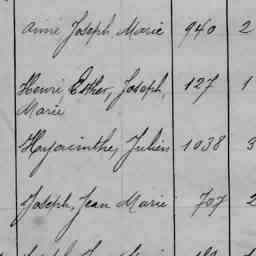 Aimé Joseph Marie 940 2
Henri Esther, Joseph, 127 1
Marie
Hyacinthe, Julien 1038 3
Joseph, Jean Marie 707 2